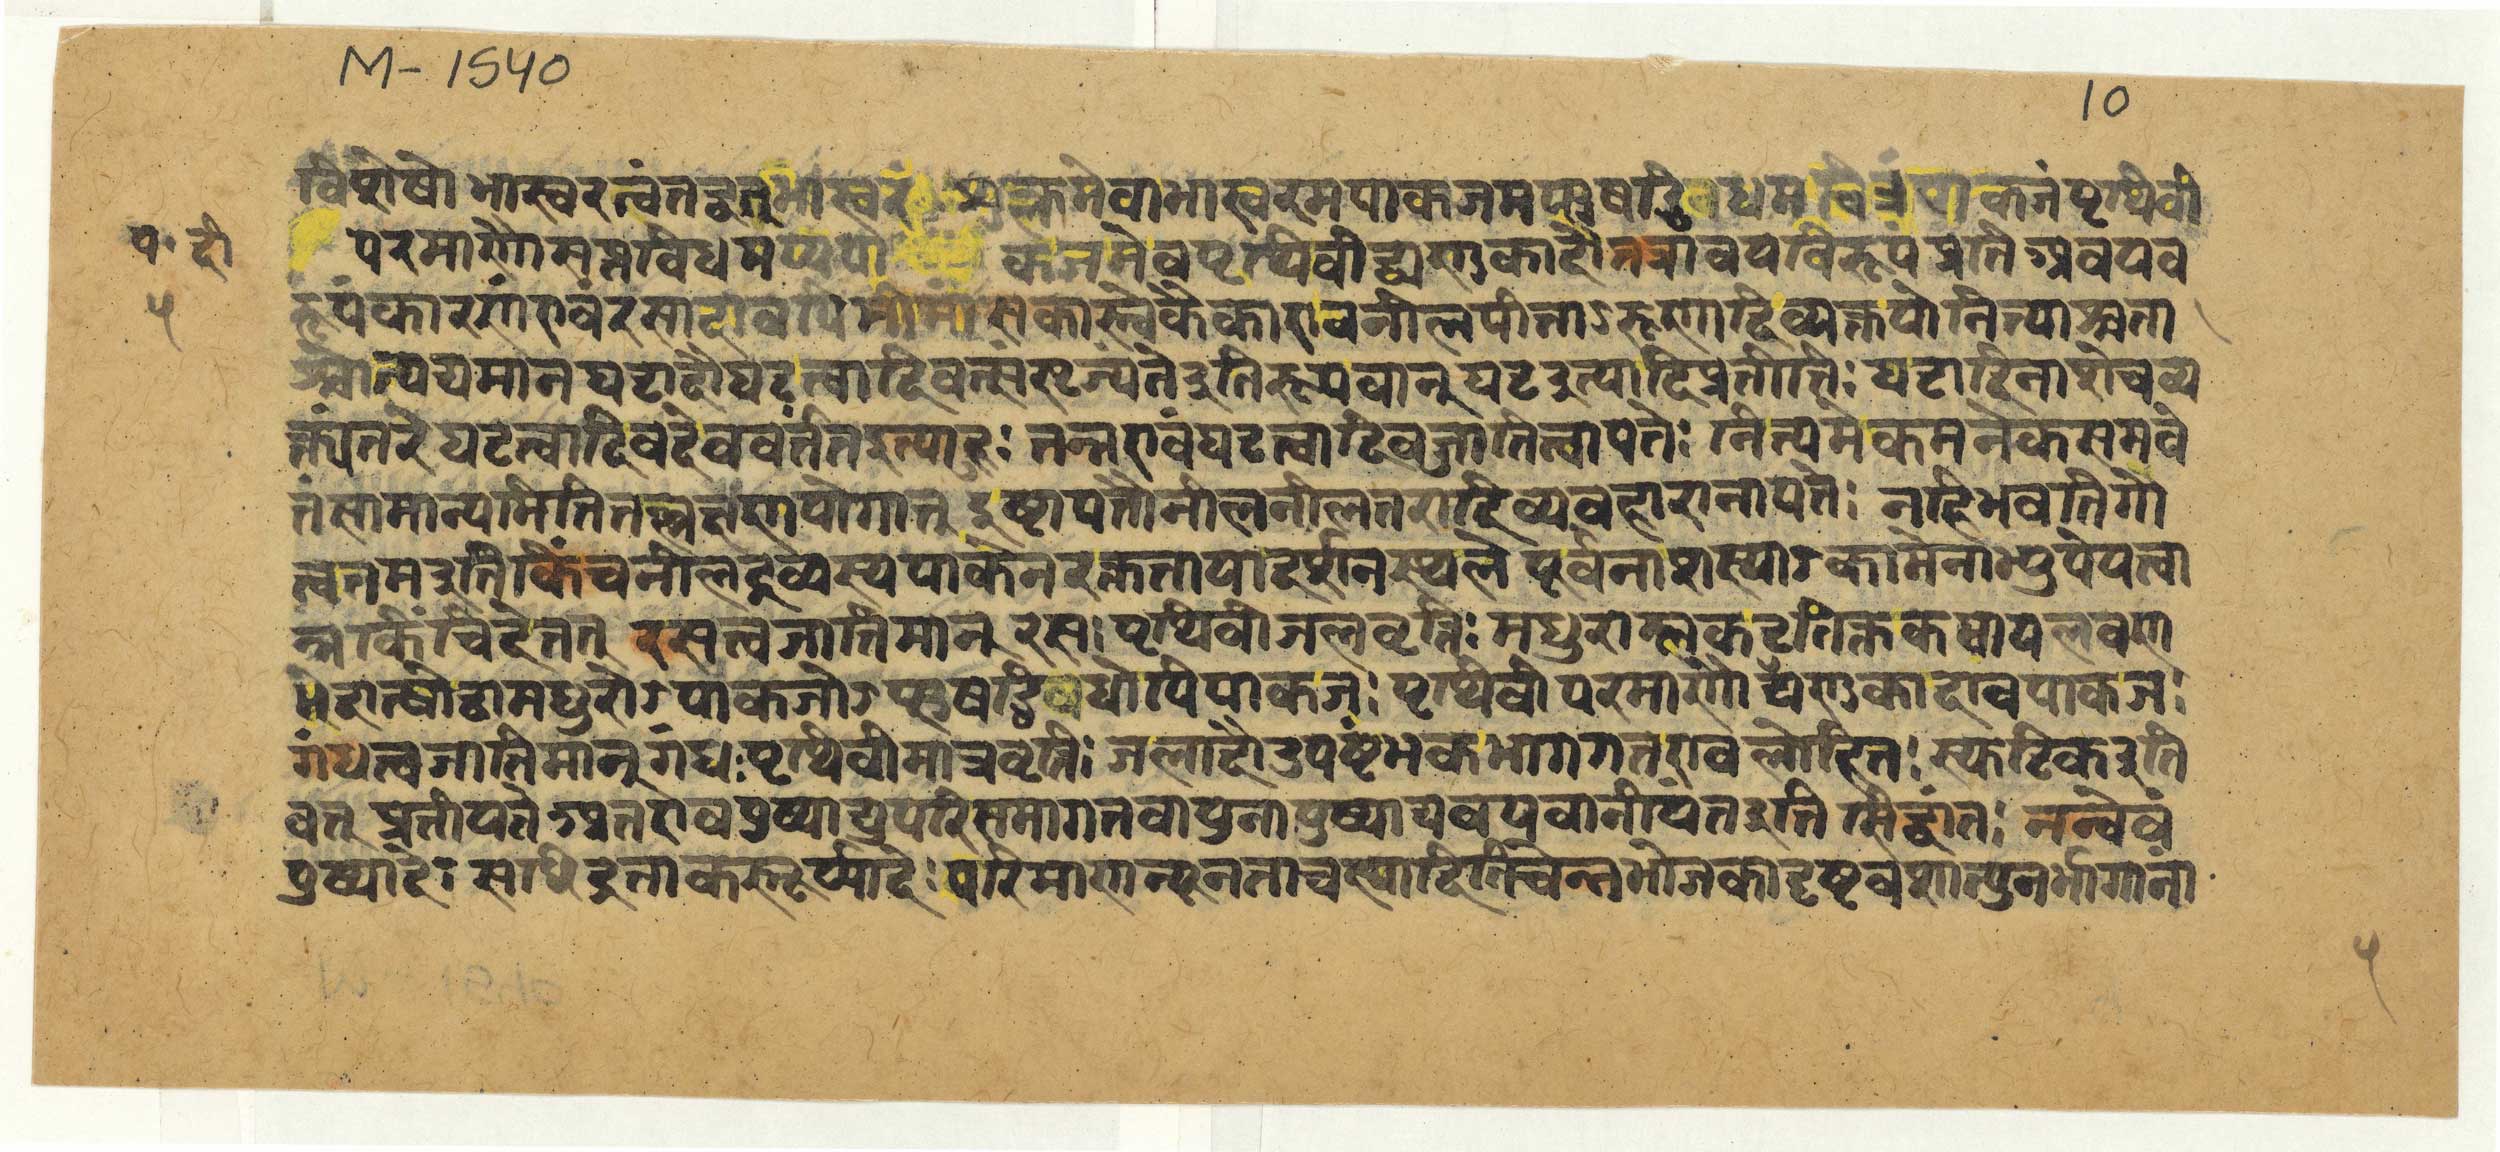 M-1540
10
विशेषो भास्वरत्वं तद्वत् भास्वरं शुक्लमेवाभास्वरमपाकजमप्सु षड्विधमचित्रं पाकजं पृथिवी
प॰ टी
५
परमाणौ सप्तविधमप्यपाकजमेव पृथिवीद्व्यणुकादौ तत्रावयविरूपं प्रति अवयव
रूपं कारणं एवं रसादावपि मीमांसकास्त्वेकैका एव नीलपीताऽरूणादिव्यक्तयो नित्या अतो
न्यमान घटादौ घटत्वादिवत्संसृज्यते इति रूपवान् घट इत्यादिप्रतीतिः घटादिनाशे च व्य
क्त्यंतरे घटत्वादिवदेव वर्तत इत्याहुः तन्न एवं घटत्वादिवज्जातित्वापत्तेः नित्यमेकमनेकसमवे
तं सामान्यमिति तल्लक्षणयोगात् इष्टापत्तौ नीलनीलतरादिव्यवहारानापत्तेः नहि भवति गो
त्वतम इति किं च नीलद्रव्यस्य पाकेन रक्ततायादर्शनस्थले पूर्वनाशस्याऽकामेनाभ्युपेयत्वा
न्न किंचिदेतत् रसत्वजातिमान् रसः पृथिवीजलवृत्तिः मधुराम्लकटुतिक्तकषायलवण
भेदात्षोढा मधुरोऽपाकजोऽप्सु षड्विधोपि पाकजः पृथिवीपरमाणौ द्व्यणुकादावपाकजः
गंधत्वजातिमान् गंधः पृथिवीमात्रवृत्तिः जलादौ उपष्टंभकभागगत एव लोहितः स्फटिक इति
वत् प्रतीयते अत एव पुष्पाद्युपरिसमागतवायुना पुष्पाद्यवयवा नीयंत इति सिद्धांतः नन्वेवं
पुष्पादेः सछिद्रता कस्तूर्यादेः परिमाणन्यूनता च स्यादितिचेन्न भोजकादृष्टवशात्पुनर्भागानां
५